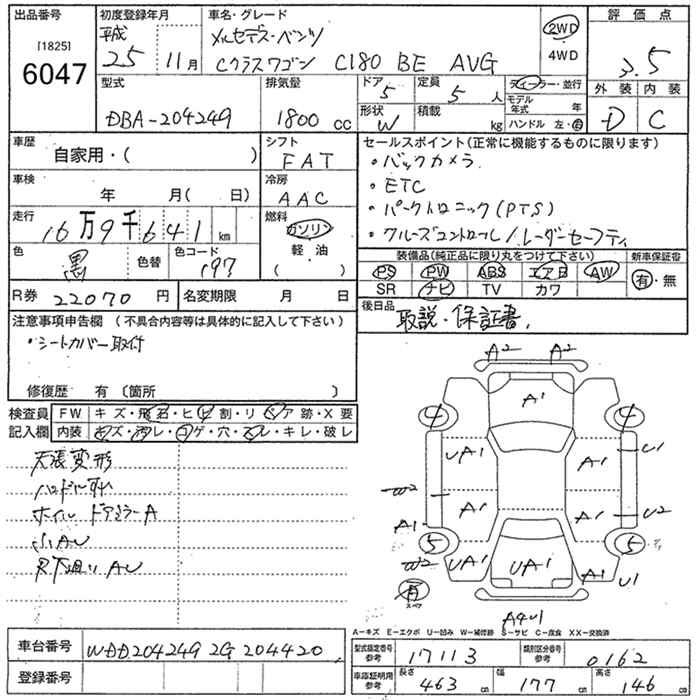 出品番号 初度登録年月 車名・グレード 評価点
[1825] 平成 メルセデス・ベンツ 2WD
6047 25 11月 Cクラスワゴン C180 BE AVG 4WD 3.5
型式 排気量 ドア 定員 ディーラー・並行 外装 内装
5 5人 モデル年式 年
DBA-204249 1800cc 形状 積載 D C
W kg ハンドル 左・右
車歴 シフト セールスポイント(正常に機能するものに限ります)
自家用・( ) FAT ・バックカメラ
車検 冷房 ・ETC
年 月( 日) AAC ・パークトロニック(PTS)
走行 燃料 ・クルーズコントロール/レーダーセーフティ
16万9千641km ガソリン
色 色替 色コード 軽・油 装備品(純正品に限り丸をつけて下さい) 新車保証書
黒 197 ( ) PS PW ABS エアB AW 有・無
R券 22070円 名変期限 月 日 SR ナビ TV カワ
注意事項申告欄 (不具合内容等は具体的に記入して下さい) 後日品 取説・保証書
・シートカバー取付
修復歴 有〔箇所 〕
検査員 FW キズ・飛石・ヒビ割・リペア跡・X要
記入欄 内装 キズ・汚レ・コゲ・穴・スレ・キレ・破レ
天張変形
ホイル ドアミラーA
A2 A2
A1
4 4
UA1 A1 U1
W2 A1 A1 U2
A1
5 5
W2 UA1 UA1 A1 U1
スペア
A4U1
A－キズ E－エクボ U－凹み W－補修跡 S－サビ C－腐食 XX－交換済
車台番号 WDD204249 2G 204420
型式指定番号 参考 17113 類別区分番号 参考 0162
登録番号
車庫証明用 参考 長さ 463 cm 幅 177 cm 高さ 146 cm